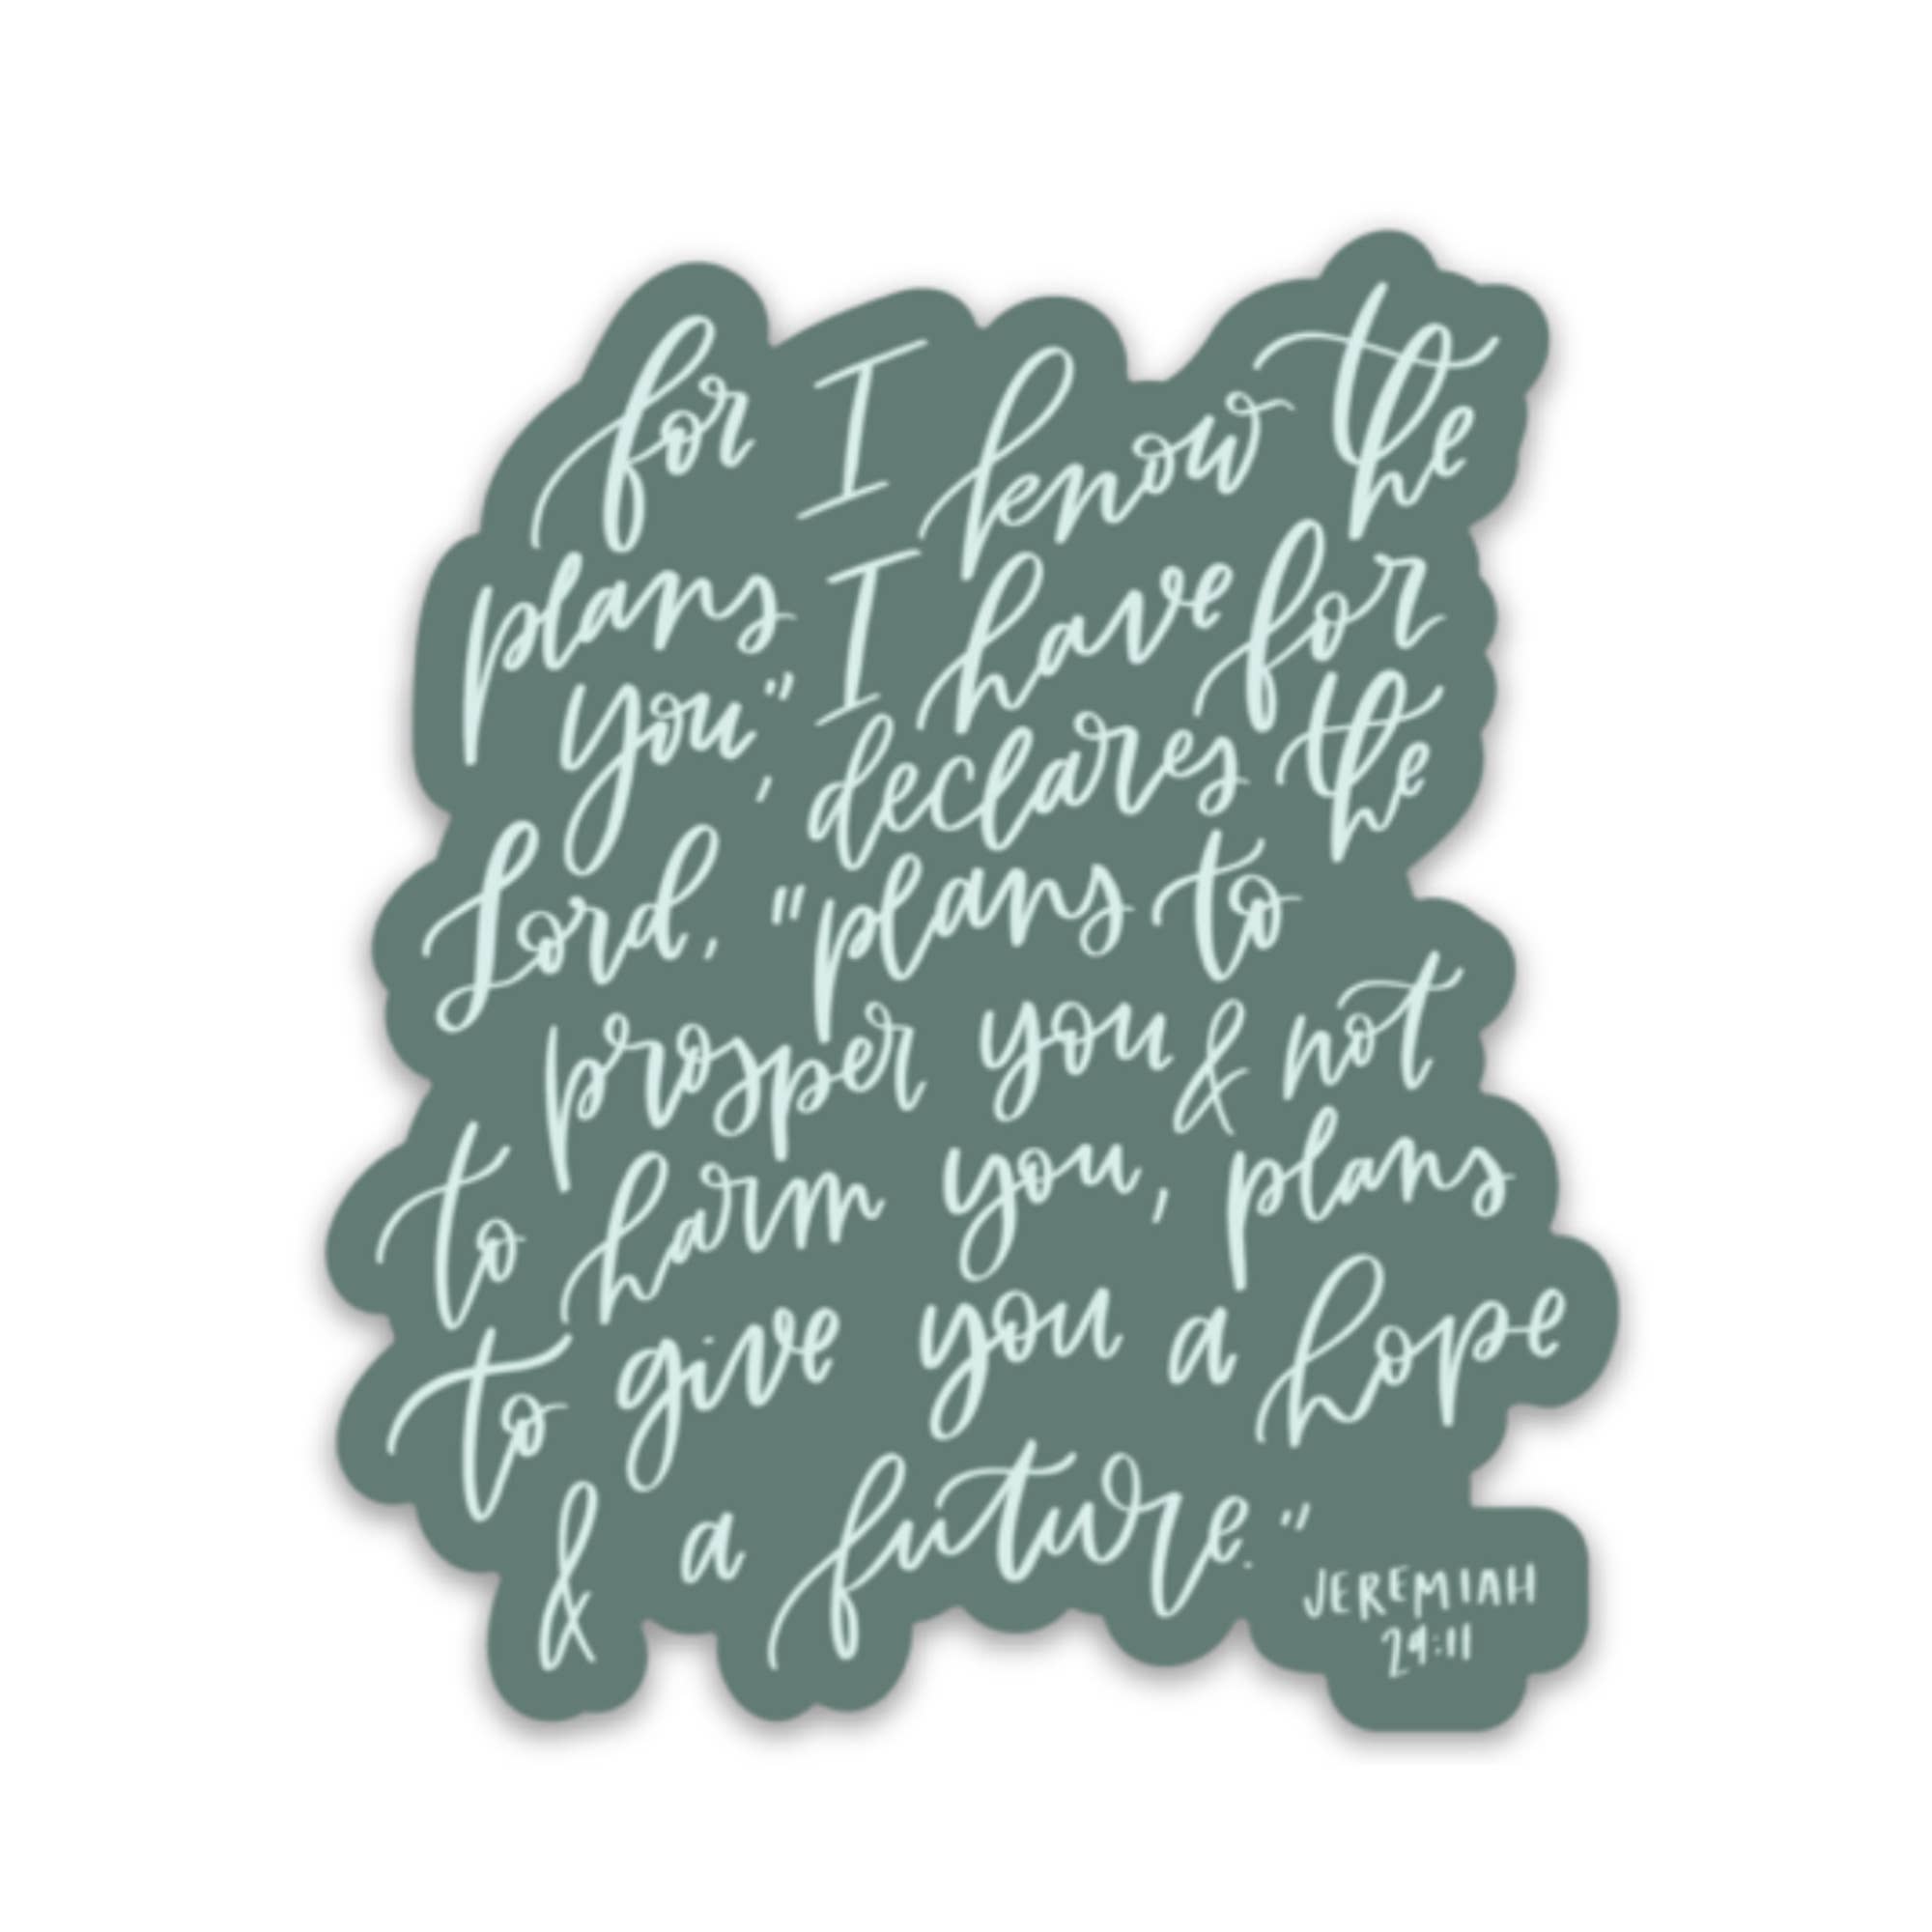 for I know the
plans I have for
you," declares the
Lord, "plans to
prosper you & not
to harm you, plans
to give you a hope
& a future."
JEREMIAH
29:11